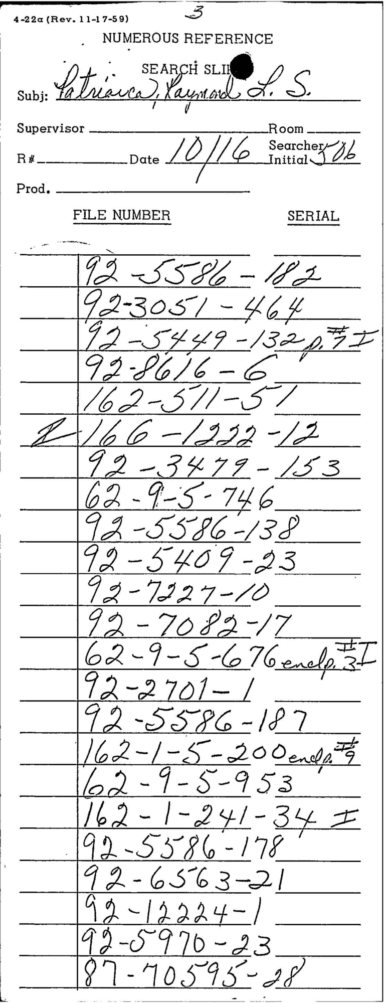 3
4-22a (Rev. 11-17-59)
NUMEROUS REFERENCE
SEARCH SLIP
Subj: Patriarca, Raymond L. S.
Supervisor Room
R# Date 10/16 Searcher Initial
Prod.
FILE NUMBER SERIAL
92-5586-182
92-3051-464
92-5449-132 p. #7 I
92-8616-6
162-511-51
166-1222-12
92-3479-153
62-9-5-746
92-5586-138
92-5409-23
92-7227-10
92-7082-17
62-9-5-676 enclp. #3 I
92-2701-1
92-5586-187
162-1-5-200 enclp. #9
62-9-5-953
162-1-241-34 I
92-5586-178
92-6563-21
92-12224-1
92-5970-23
87-70595-28